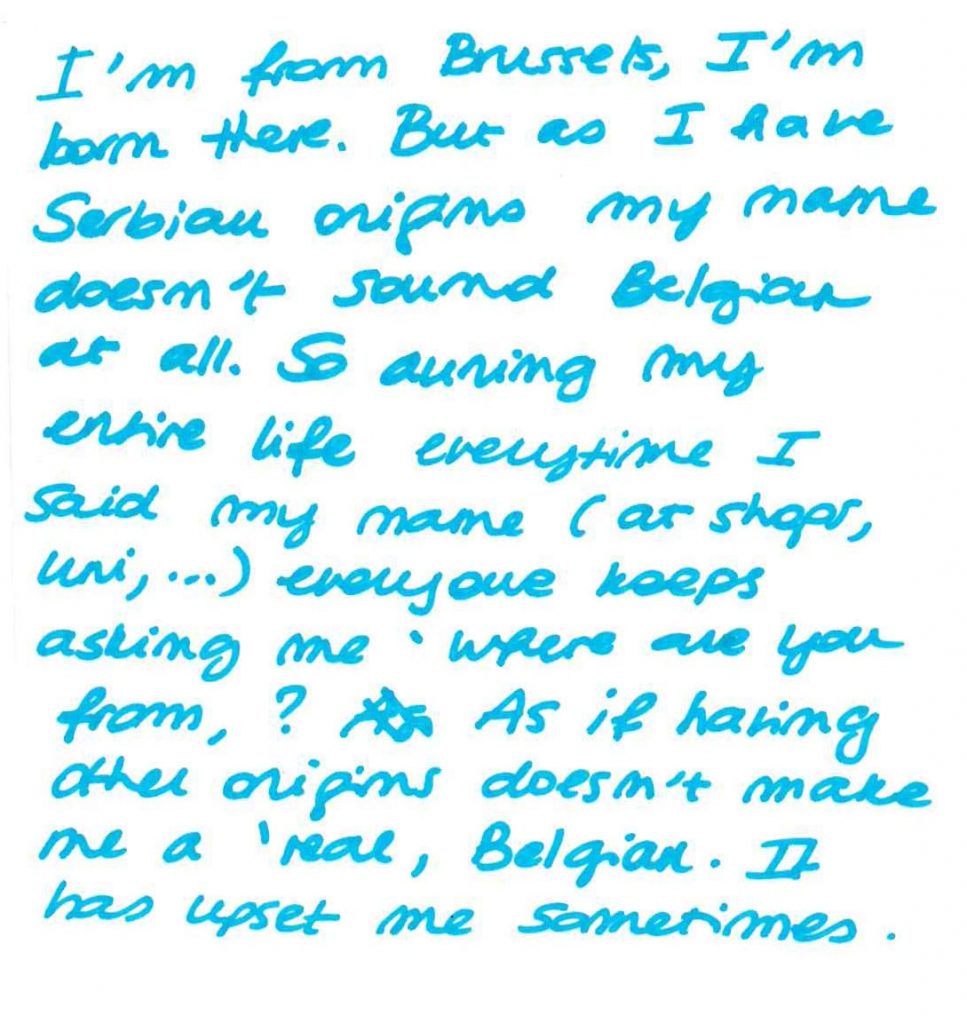 I'm from Brussels, I'm
born there. But as I have
Serbian origins my name
doesn't sound Belgian
at all. So during my
entire life everytime I
said my name (at shops,
uni, ...) everyone keeps
asking me 'where are you
from, ? As if having
other origins doesn't make
me a 'real, Belgian. It
has upset me sometimes.